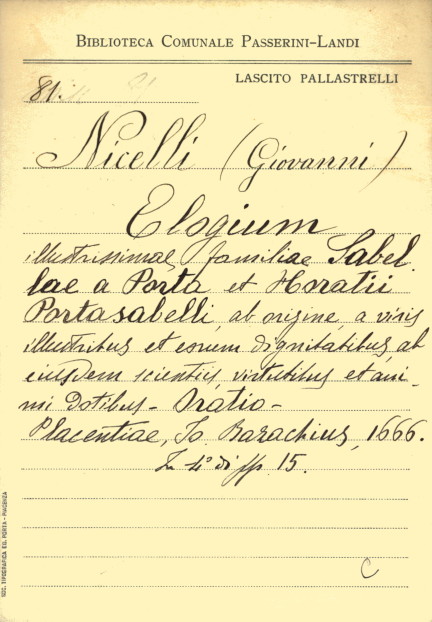 BIBLIOTECA COMUNALE PASSERINI-LANDI
LASCITO PALLASTRELLI
81.
Nicelli (Giovanni)
Elogium
illustrissimae familiae Sabel
lae a Porta et Horatii
Portasabelli, ab origine, a viris
illustribus et eorum dignitatibus, ab
eiusdem scientiis virtutibus et ani
mi dotibus - Oratio -
Placentiae, Io. Bazachius, 1666.
In 4° di pp. 15.
C
SOC. TIPOGRAFICA ED. PORTA - PIACENZA